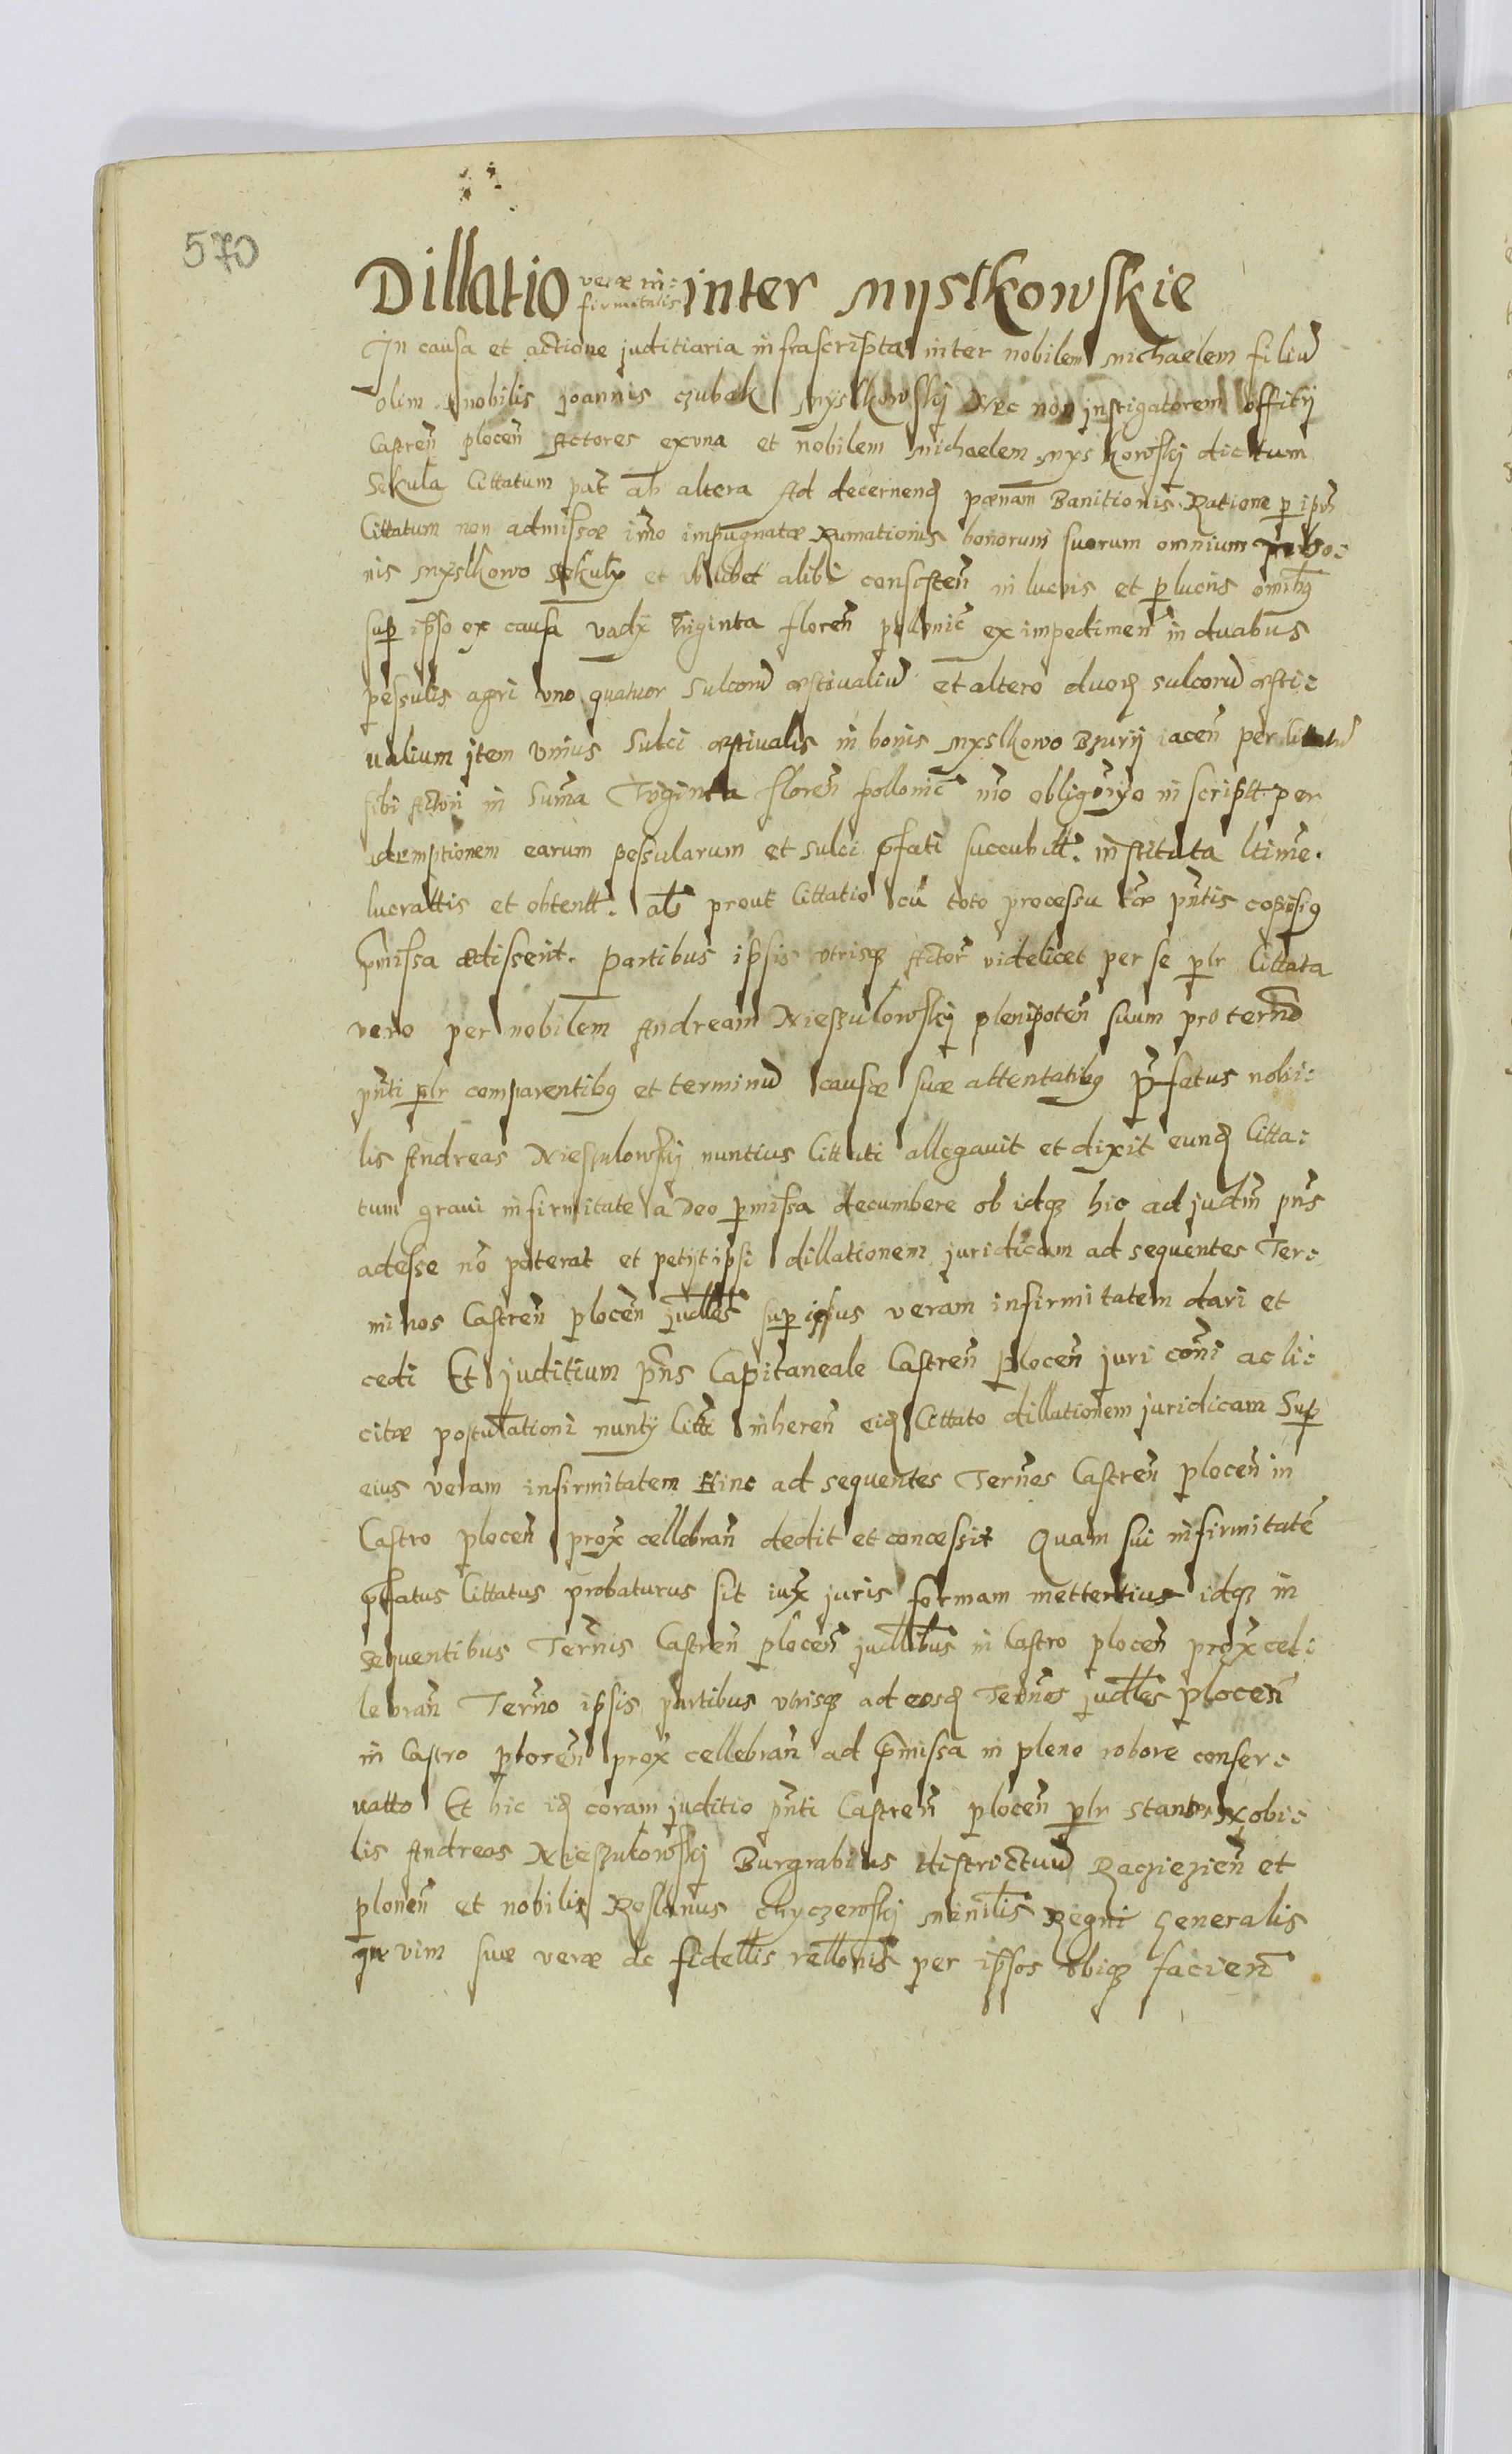 570
Dillatio veræ in: inter Myslkowskie
firmitatis
In causa et actione juditiaria infrascripta inter nobilem Michaelem filiũ
olim nobilis Joannis Czubak Myslkowskij Nec non instigatorem officij
Castreñ ploceñ Actores ex una et nobilem Michaelem Myslkowskij dictum
Sekula Cittatum par̃t ab altera Ad decernend pœnam Banitionis Ratione p ipm̃
Cittatum non admissæ imo impugnatæ Rumationis bonorum suorum omnium
nis Myslkowo Sekuły et ubi libet alibi consisteñ in lucris et p lucris omibꝫ
sup ipso ex causa vadij Triginta floreñ pollonic̃ ex impedimeñ in duabus
pessulis agri uno quatuor Sulcorũ æstivaliũ et altero duorꝫ sulcorũ æsti:
valium item Unius Sulci æstivalis in bonis Myslkowo Bzurij iaceñ per Cittatũ
sibi Actori in Suma Triginta floreñ pollonic̃ mo obligorijo inscriptt. per
ademptionem earum pessularum et sulci pfati succubitt. instituta ltime.
lucrattis et obtentt. als prout Cittatio cũ toto processu tæ pñtis copiosiꝰ
pmissa ædisserit. Partibus ipsis utrisqꝫ Actore videlicet per se plr Cittata
vero per nobilem Andream Nieszulowskij plenipoteñ suum pro terno
pñti plr comparentibꝫ et terminũ causæ suæ attentatibꝫ p-fatus nobi:
lis Andreas Nieszulowskij nuntius Cittati allegavit et dixit eund Citta:
tum gravi infirmitate a Deo pmissa decumbere ob idqꝫ hic ad judm̃ pñs
adesse nõ poterat et petijt ipsi dillationem juridicam ad sequentes Ter:
minos Castreñ ploceñ judles sup ipsius veram infirmitatem dari et
cedi Et juditium pñs Capitaneale Castreñ ploceñ juri coñi ac li:
citæ postulationi nuntij Citti inhereñ eid Cittato dillationem juridicam Sup
eius veram infirmitatem Hinc ad sequentes Terños Castreñ ploceñ in
Castro ploceñ prox̃ cellebrañ dedit et concessit Quam sui infirmitatẽ
pfatus Cittatus probaturus sit iux̃ juris formam mettertius idqꝫ in
sequentibus Terñis Castreñ ploceñ judlibus in Castro ploceñ prox̃ cel:
lebrañ Terño ipsis partibus utrisqꝫ ad eosd Terños judles ploceñ
in Castro ploceñ prox̃ cellebrañ ad pmissa in pleno robore conser:
vatto Et hic id coram juditio pñti Castreñ ploceñ plr stans Nobi:
lis Andreas Nieszulowskij Burgrabius districtuũ Racziązieñ et
ploneñ et nobilis Roslanus Chyczewskij Minilis Regni Generalis
in vim suæ veræ ac fidellis rellonis per ipsos ubiqꝫ facieñ